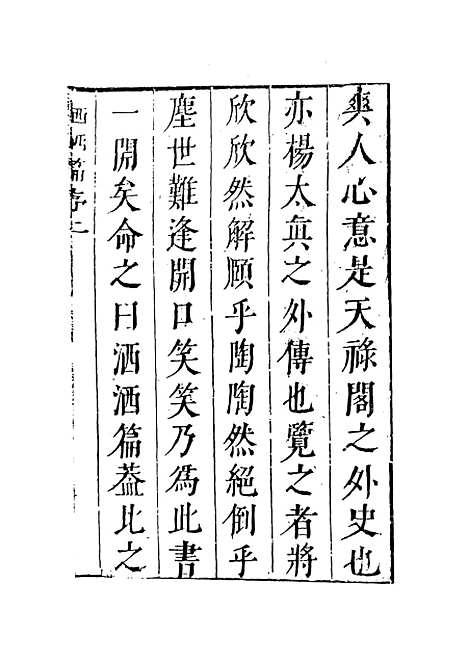 爽人心意是天祿閣之外史也
亦楊太真之外傳也覽之者將
欣欣然解頤乎陶陶然絕倒乎
塵世難逢開口笑笑乃爲此書
一開矣命之曰洒洒篇葢比之
洒洒篇序二